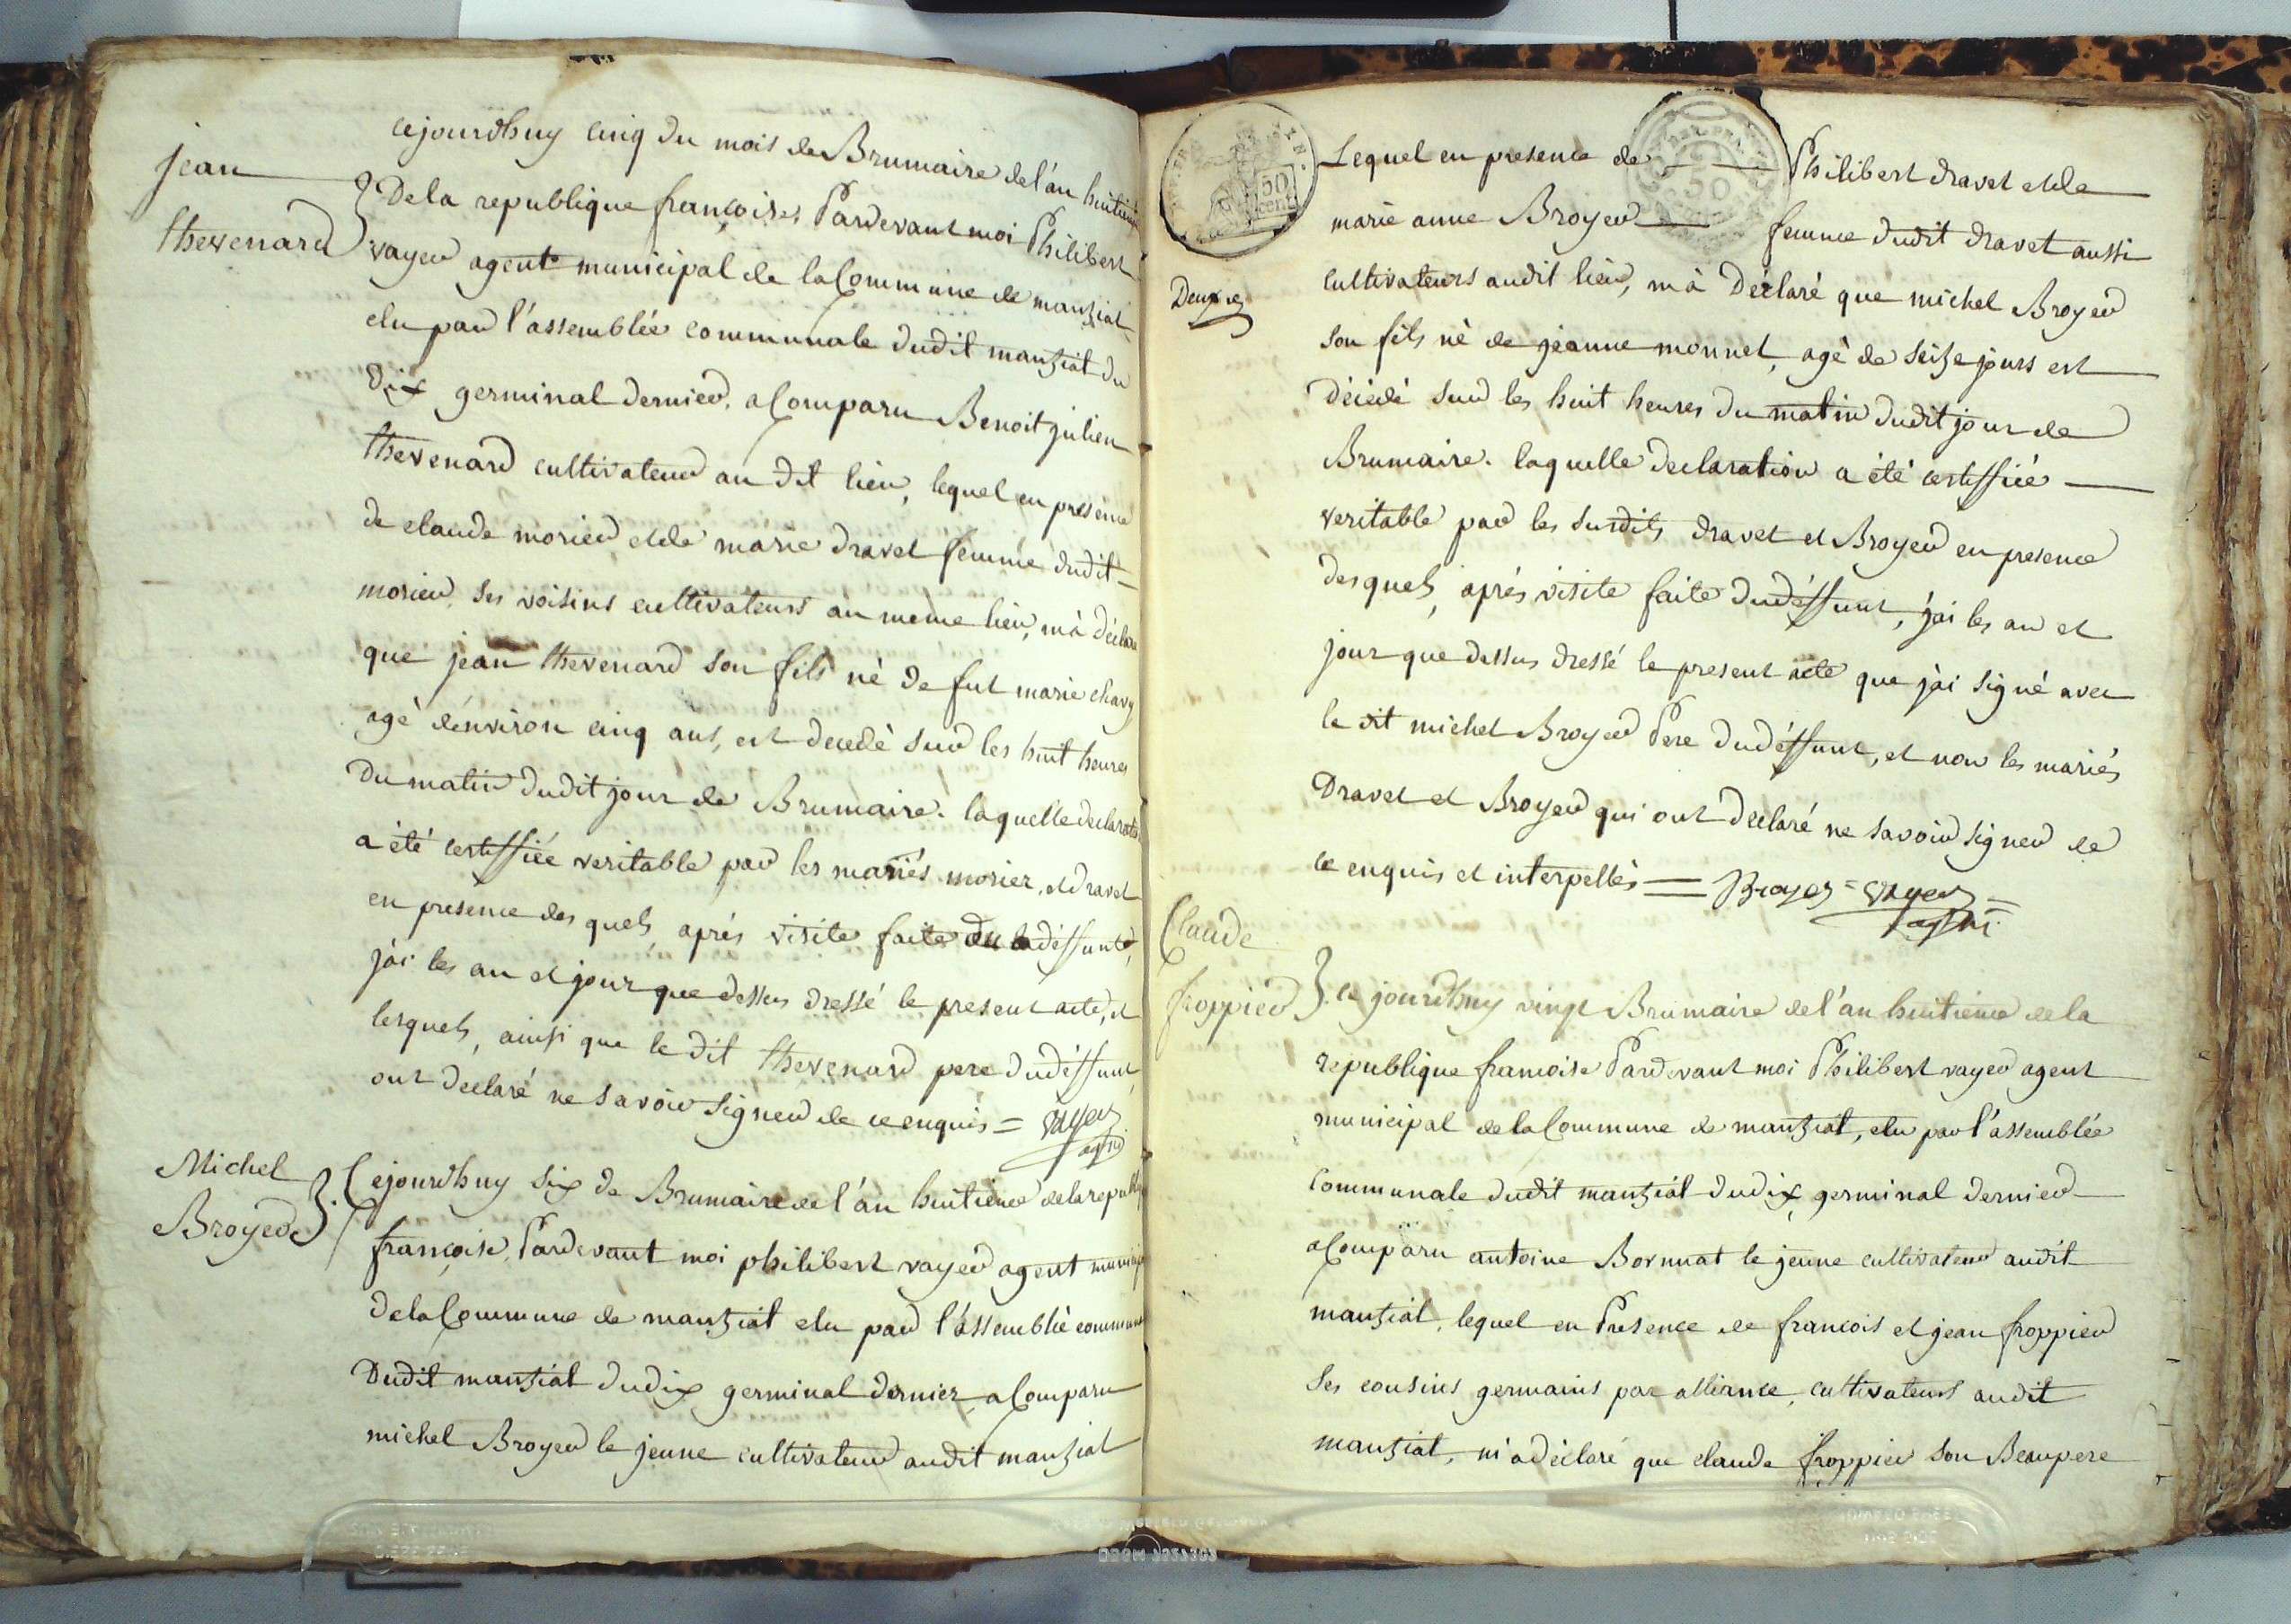 jean
thevenard
cejourdhuy cinq du mois de Brumaire de l'an huitieme
De la republique françoise, Pardevant moi Philibert
vayer agent municipal de la Commune de manziat
elu par l'assemblée communale dudit manziat du
dix germinal dernier, a Comparu Benoit julien
thevenard cultivateur au dit lieu, lequel en presence
de claude morier et de marie dravet femme dudit =
morier, ses voisins cultivateurs au meme lieu, m'a déclaré
que jean thevenard son fils né de fut marie chavy
agé d'environ cinq ans, est decedé sur les huit heures
Du matin dudit jour de Brumaire. laquelle declaration
a été certiffiée veritable par les mariés morier, et dravet
en presence des quels, aprés visite faite du déffunt,
j'ai les an et jour que dessus dressé le present acte, et
lesquels, ainsi que le dit thevenard pere du déffunt,
ont declaré ne savoir signer de ce enquis = vayer
ag. m.
Michel
Broyer
Cejourdhuy six de Brumaire de l'an huitieme de la republique
françoise, Pardevant moi philibert vayer agent municipal
de la Commune de manziat elu par l'assemblée communale
Dudit manziat du dix germinal dernier, a Comparu
michel Broyer le jeune cultivateur audit manziat
50
cent
50
Lequel en presence de Philibert dravet et de
marie anne Broyer femme dudit dravet aussi
cultivateurs audit lieu, m'à Déclaré que michel Broyer
son fils né de jeanne monnet, agé de seize jours est
Décédé sur les huit heures du matin dudit jour de
Brumaire. laquelle declaration a été certiffiée
veritable par les susdits dravet et Broyer en presence
desquels, aprés visite faite du déffunt, j'ai les an et
jour que dessus dressé le present acte que j'ai signé avec
le dit michel Broyer Pere du déffunt, et non les mariés
Dravet et Broyer qui ont déclaré ne savoir signer de
ce enquis et interpellés = Broyer = vayer =
ag. m.
Claude
froppier
ce jourdhuy vingt Brumaire de l'an huitieme de la
republique francoise Pardevant moi Philibert vayer agent
municipal de la Commune de manziat, elu par l'assemblée
communale dudit manziat du dix germinal dernier
a Comparu antoine Bornuat le jeune cultivateur audit
manziat, lequel en Presence de francois et jean froppier
ses cousins germains par alliance, cultivateurs audit
manziat, m'a déclaré que claude froppier son Beaupere